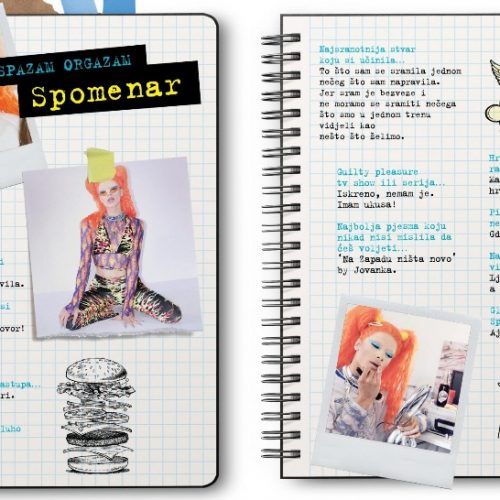 SPAZAM ORGAZAM
Spomenar
vila.
si
ovor!
astupa...
ri.
luho
Najsramotnija stvar
koju si učinila...
To što sam se sramila jednom
nečeg što sam napravila.
Jer sram je bezveze i
ne moramo se sramiti nečega
što smo u jednom trenu
vidjeli kao
nešto što želimo.
Guilty pleasure
tv show ili serija...
Iskreno, nemam je.
Imam ukusa!
Najbolja pjesma koju
nikad nisi mislila da
ćeš voljeti...
'Na Zapadu ništa novo'
by Jovanka.
Hr
ra
Ma
hr
Pi
ne
Gd
Na
vi
Lj
a
Gl
Sp
Aj